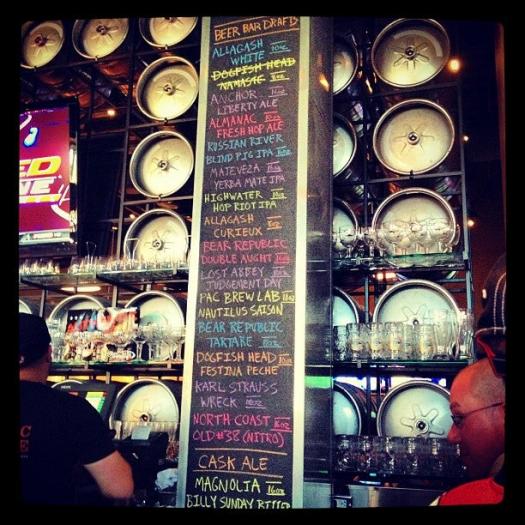 BEER BAR DRAFTS
ALLAGASH 10oz
WHITE
DOGFISH HEAD
NAMASTE
ANCHOR 16oz
LIBERTY ALE
ALMANAC
FRESH HOP ALE
RUSSIAN RIVER
BLIND PIG IPA
MATEVEZA
YERBA MATE IPA
HIGHWATER
HOP RIOT IPA
ALLAGASH
CURIEUX
BEAR REPUBLIC
DOUBLE AUGHT
LOST ABBEY
JUDGEMENT DAY
PAC BREW LAB
NAUTILUS SAISON
BEAR REPUBLIC
TARTARE
DOGFISH HEAD
FESTINA PECHE
KARL STRAUSS
WRECK 16oz
NORTH COAST
OLD #38 (NITRO)
CASK ALE
MAGNOLIA
BILLY SUNDAY BITTER